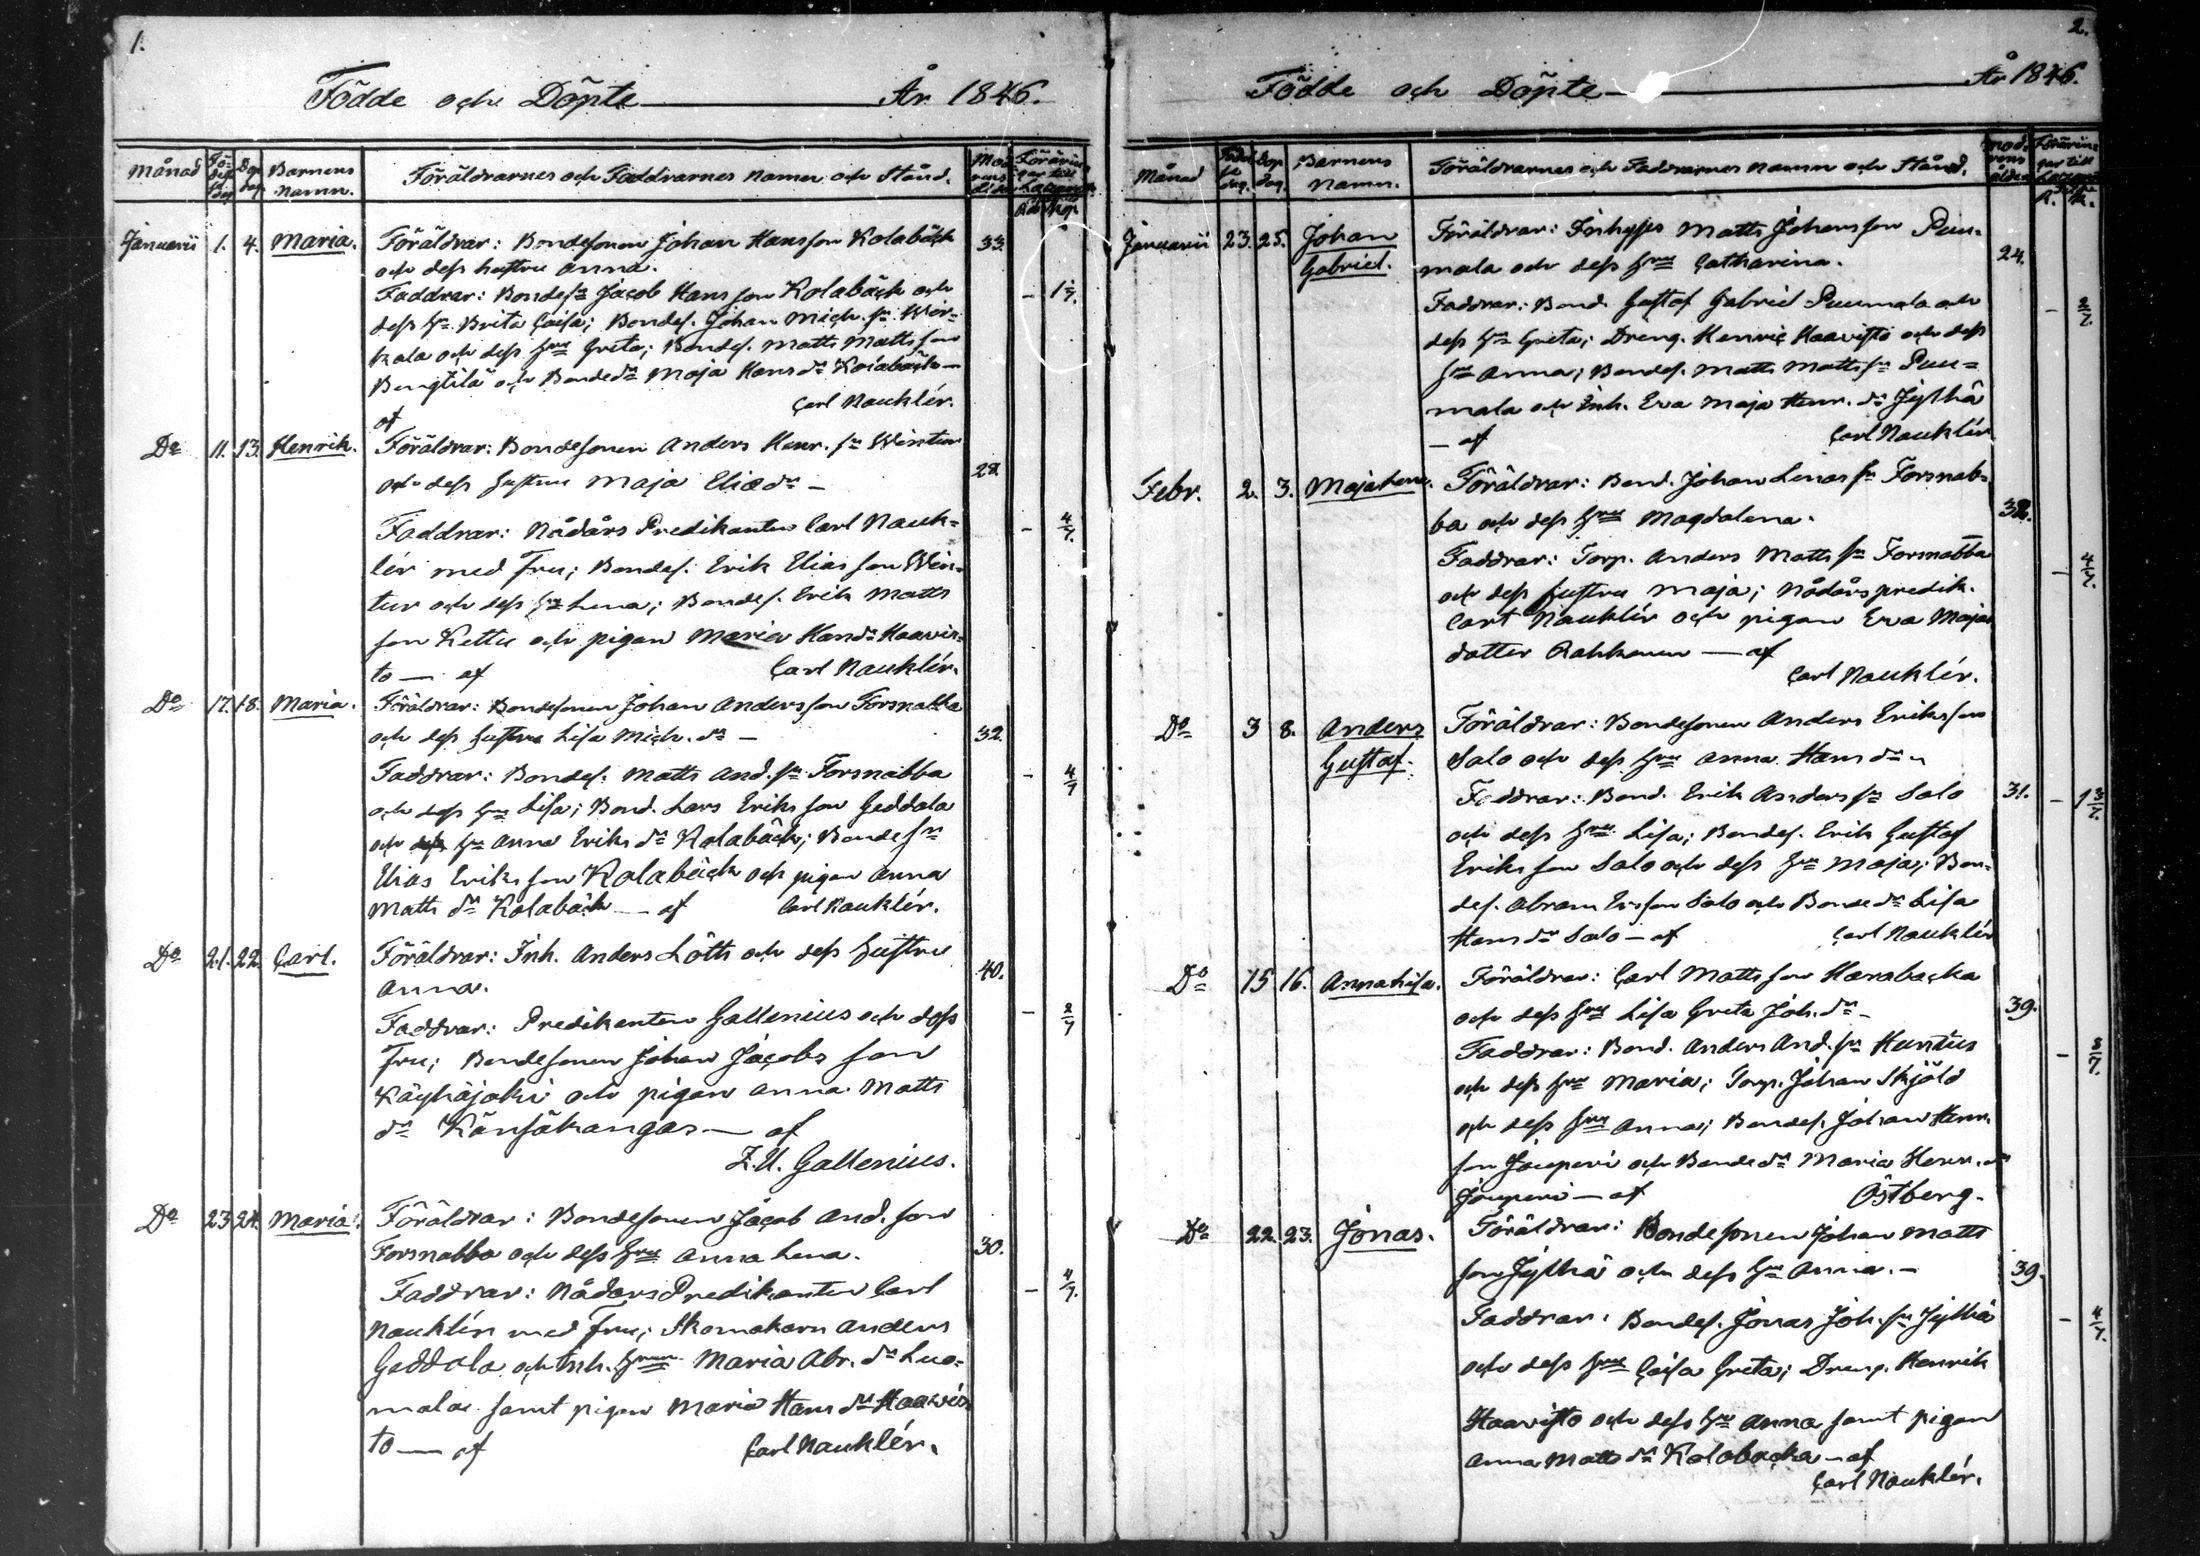 1.
Födde och Döpte — År 1846.
Månad Födelsedag Dop dag Barnens Namn. Föräldrarnes och Faddrarnes Namn och Stånd. Modrens ålder
Rub. Kop.
Januarii 1. 4. Maria. Föräldrar: Bondesonen Johan Hansson Kolabäck 33.
och dess hustru Anna.
Faddrar: Bondesn Jacob Hansson Kolabäck och – 1 1/7.
dess hu Brita Caisa; Bondes. Johan Mich. sn Wir-
kala och dess hru Greta; Bondes. Matts Mattsson
Bengtilä och Bondedr Maja Hansdr Kolabäck —
af Carl Nauklér.
Do 11. 13. Henrik. Föräldrar: Bondesonen Anders Henr. sn Wintur
och dess hustru Maja Eliædr – 28.
Faddrar: Nådårs Predikanten Carl Nauk- – 4/7.
lér med Fru; Bondes. Erik Eliasson Win-
tur och dess hu Lena; Bondes. Erik Matts
son Kettu och pigan Maria Hansdr Haavis-
to — af Carl Nauklér.
Do 17. 18. Maria. Föräldrar: Bondesonen Johan Andersson Forsnabba
och dess hustru Lisa Mich. dr – 32.
Faddrar: Bondes. Matts And. sn Forsnabba – 4/7
och dess hru Lisa; Bond. Lars Eriksson Geddala
och dess hu Anna Eriksdr Kolabäck; Bondesn
Elias Eriksson Kolabäck och pigan Anna
Matts dr Kolabäck — af Carl Nauklér.
Do 21. 22. Carl. Föräldrar: Inh. Anders Lötts och dess hustru 40.
Anna.
Faddrar: Predikanten Gallenius och dess – 2/7
Fru; Bondesonen Johan Jacobs son
Käyhäjoki och pigan Anna Matts
dr Känsäkangas — af
Z.U. Gallenius.
Do 23. 24. Maria. Föräldrar: Bondesonen Jacob And. son
Forsnabba och dess hru Anna Lena. 30.
Faddrar: Nådårs Predikanten Carl – 4/7.
Nauklér med Fru; Skomakarn Anders
Geddala och Inh. hrun Maria Abr. dr Luo-
mala samt pigan Maria Hansdr Haavis
to — af Carl Nauklér.
2.
Födde och Döpte — År 1846.
Månad Födelsedag. Dop dag. Barnens Namn. Föräldrarnes och Faddrarnes Namn och Stånd. Modrens ålder
R. K.
Januarii 23. 25. Johan Föräldrar: Inhyses Matts Johansson Puu-
Gabriel. mala och dess hru Catharina. 24.
Faddrar: Bond. Gustaf Gabriel Puumala och – 2/7.
dess hu Greta; Dreng. Henric Haavisto och dess
hru Anna; Bondes. Matts Matts sn Puu-
mala och Inh. Eva Maja Henr. dr Jylhä
— af Carl Nauklér
Febr. 2. 3. Maja Lena. Föräldrar: Bond. Johan Linas sn Forsnab-
ba och dess hru Magdalena. 32.
Faddrar: Torp. Anders Matts sn Forsnabba – 4/7.
och dess hustru Maja; Nådårspredik.
Carl Nauklér och pigan Eva Maja
dotter Rahkonen — af
Carl Nauklér.
Do 3 8. Anders Föräldrar: Bondesonen Anders Eriksson
Gustaf. Salo och dess hru Anna Hansdr
Faddrar: Bond. Erik Anders sn Salo 31. – 1 3/7.
och dess hru Lisa; Bondes. Erik Gustaf
Eriksson Salo och dess hru Maja; Bon-
des. Abram Ersson Salo och Bondedr Lisa
Hansdr Salo — af Carl Nauklér
Do 15 16. Anna Lisa. Föräldrar: Carl Mattsson Harabacka
och dess hru Lisa Greta Joh. dr – 39.
Faddrar: Bond. Anders And. sn Huntus – 3/7.
och dess hru Maria; Torp. Johan Skjöld
och dess hru Anna; Bondes. Johan Henr.
son Jouperi och Bondedr Maria Henr. dr
Jouperi — af Östberg.
Do 22. 23. Jonas. Föräldrar: Bondesonen Johan Matts
son Jylhä och dess hru Anna. – 39.
Faddrar: Bondes. Jonas Joh. sn Jylhä – 4/7.
och dess hru Caisa Greta; Dreng. Henrik
Haavisto och dess hru Anna samt pigan
Anna Matts dr Kolabacka — af
Carl Nauklér.